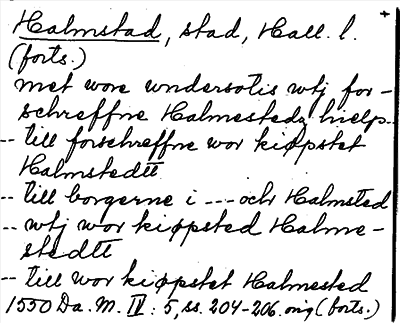 Halmstad, stad, Hall. l. +
(forts.)
met wore wndersotis wtj for-
schreffne Halmestedz hielp..
-- till forschreffne wor kiøpstet
Halmstedtt
-- till borgerne i --- och Halmsted
-- wtj wor kiøpsted Halme-
stedtt
-- till wor kiøpstet Halmested
1550 Da. M. IV: 5, ss. 204-206. orig (forts.)